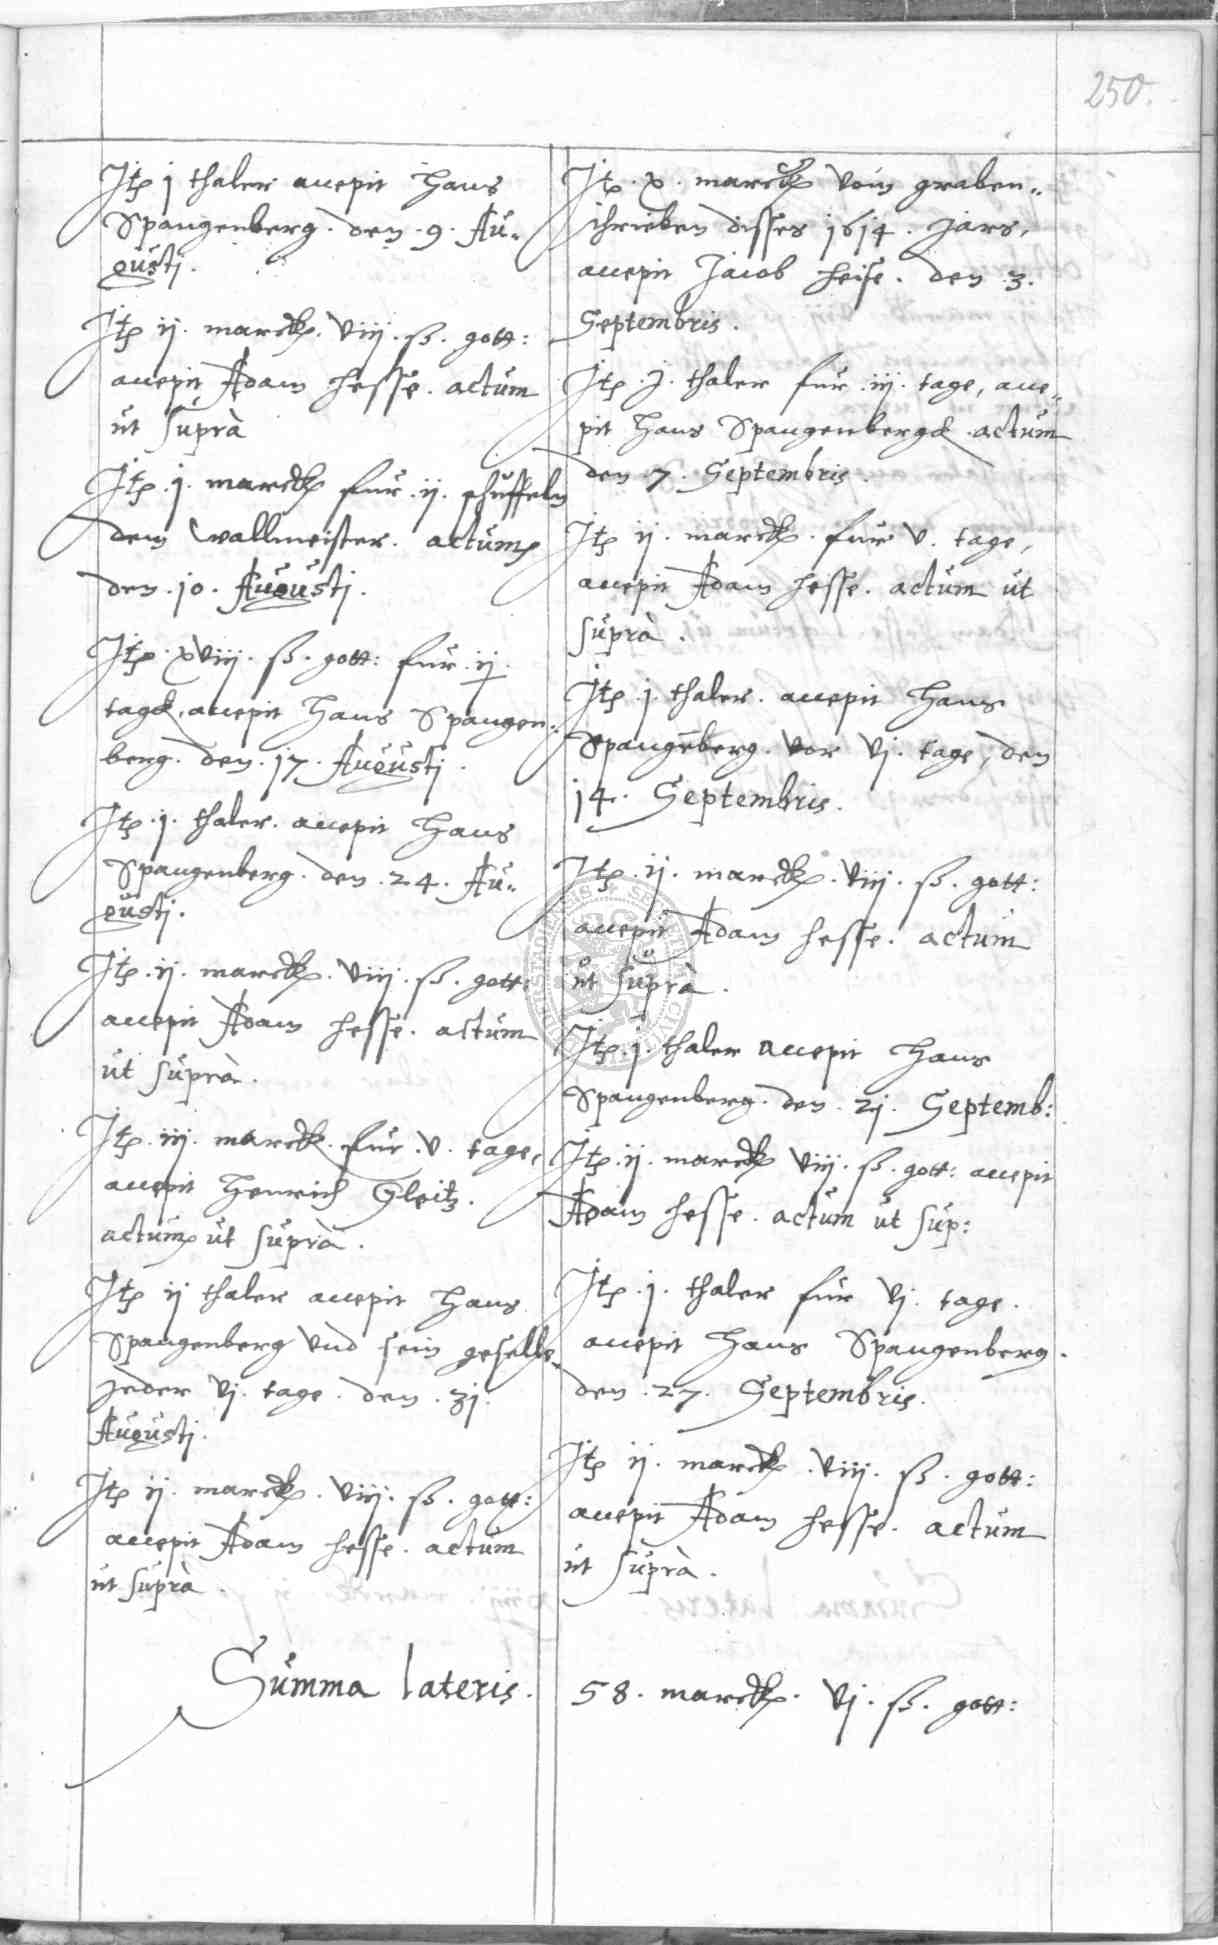 250.
Itp j thaler accepit Hans
Spangenberg. den. 9. Au„
gusti.
Itp ij. marck. viij. ß. gott:
accepit Adam Hesse. actum
ut suprà
Itp. j. marck für. ij. schuffeln
dem wallmeister. actum
den. 10. Augusti.
Itp. xviij. ß. gott: für. ij.
tage, accepit Hans Spangen„
berg. den. 17. Augusti.
Itp. j. thaler. accepit Hans
Spangenberg. den. 24. Au„
gusti.
Itp. ij. marck. viij. ß. gott:
accepit Adam Hesse. actum
ut suprà.
Itp. iij. marck. für. v. tage,
accepit Henrich Gleitz.
actum ut suprà.
Itp ij thaler accepit Hans
Spangenberg und sein geselle
jeder vj. tage. den. 31.
Augusti.
Itp ij. marck. viij. ß. gott:
accepit Adam Hesse. actum
ut suprà.
Itp. x. marck vom graben„
schrieben disses 1614. Jars,
accepit Jacob Heise. den. 3.
Septembris.
Itp. j. thaler für. iij. tage, acce„
pit Hans Spangenberg. actum
den. 7. Septembris.
Itp ij. marck. für v. tage,
accepit Adam Hesse. actum ut
suprà.
Itp. j. thaler. accepit Hans
Spangēberg. vor vj. tage, den
14. Septembris.
Itp. ij. marck. viij. ß. gott:
accepit Adam Hesse. actum
ut suprà.
Itp. j. thaler accepit Hans
Spangenberg. den. 21. Septemb:
Itp. ij. marck viij. ß. gott: accepit
Adam Hesse. actum ut sup:
Itp. j. thaler für vj. tage.
accepit Hans Spangenberg.
den. 27. Septembris.
Itp ij. marck. viij. ß. gott:
accepit Adam Hesse. actum
ut suprà.
Summa lateris. 58. marck. vj. ß. gott: